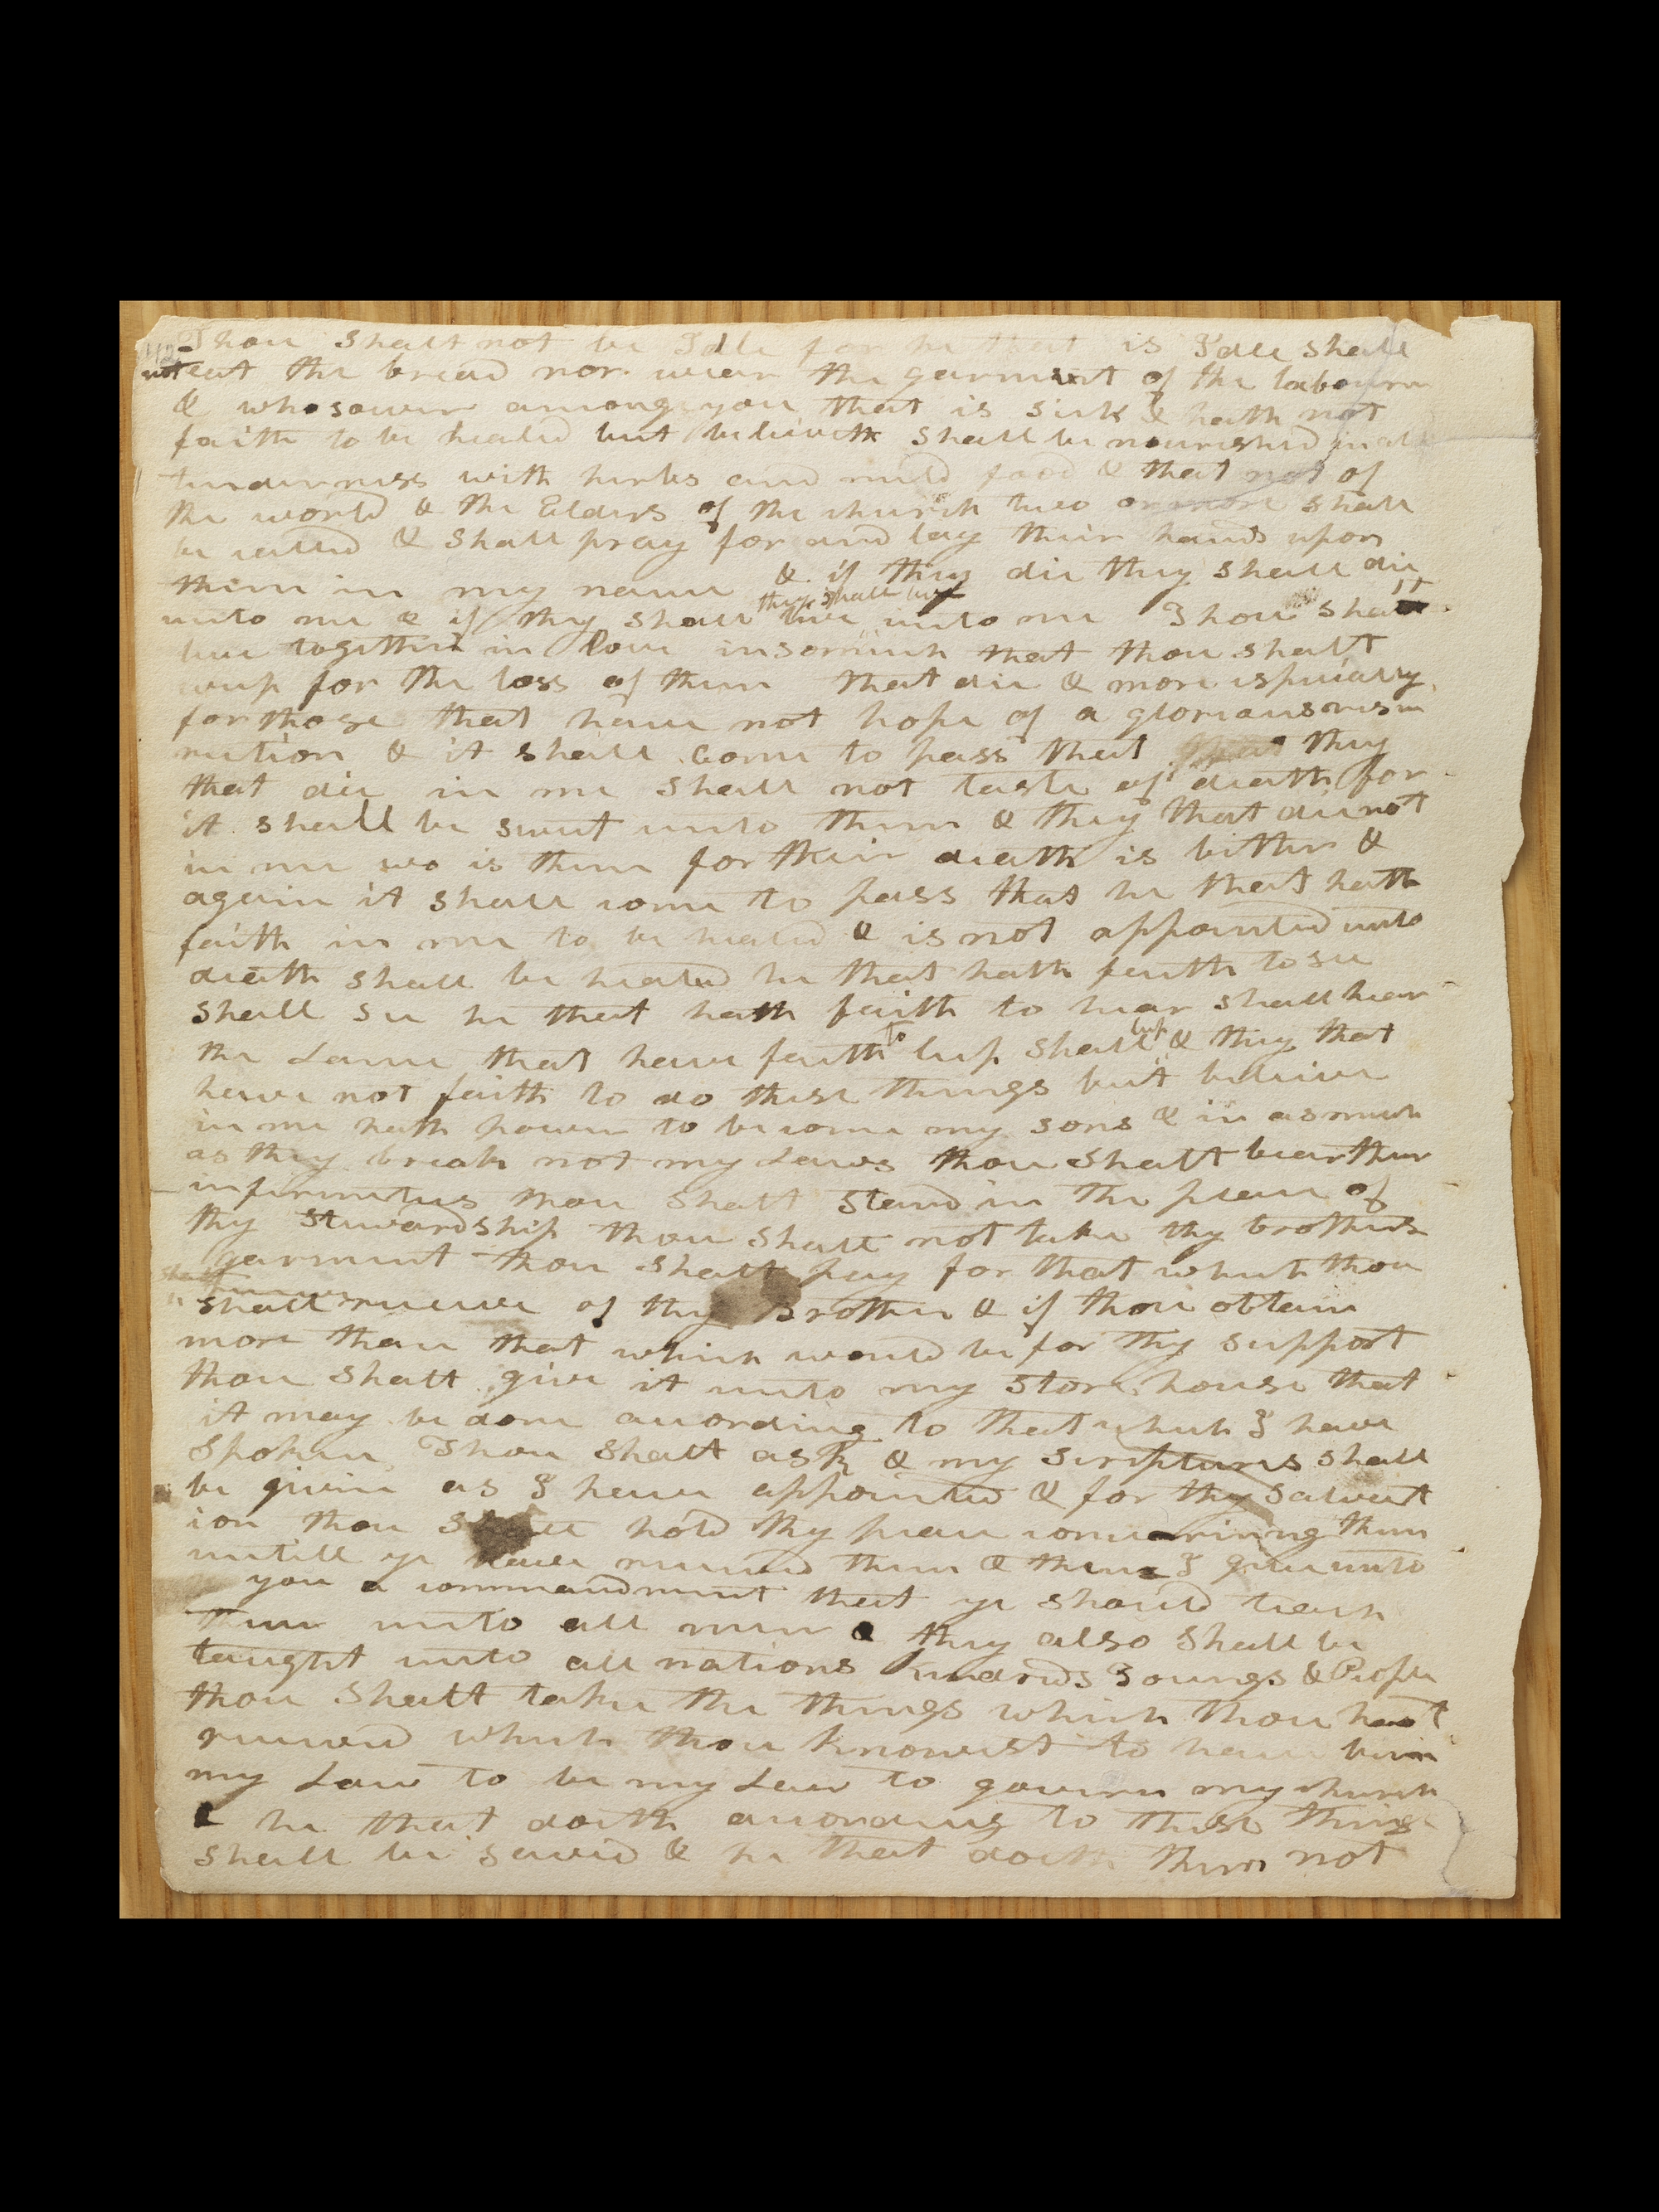 Thou shalt not be Idle for he that is Idle shall
not eat the bread nor wear the garment of the labourer
& whosoever among you that is sick & hath not
faith to be healed but believeth shall be nourished in all
tenderness with herbs and mild food & that not of
the world & the Elders of the church two or more shall
be called & shall pray for and lay their hands upon
them in my name & if they die they shall die
unto me & if they shall live unto me Thou shalt
they shall live
live together in love insomuch that thou shalt
weep for the loss of them that die & more especially
for those that have not hope of a glorious resur
rection & it shall come to pass that they
that die in me shall not taste of death for
it shall be sweet unto them & they that die not
in me wo is them for their death is bitter &
again it shall come to pass that he that hath
faith in me to be healed & is not appointed unto
death shall be healed he that hath faith to see
shall see he that hath faith to hear shall hear
the Lame that have faith to leep shall leep & they that
have not faith to do these things but believe
in me hath power to become my sons & in as much
as they break not my Laws thou shalt bear their
infirmities thou shalt stand in the place of
thy stewardship thou shalt not take thy brothers
garment thou shalt pay for that which thou
shalt receive of thy Brother & if thou obtain
more than that which would be for thy support
thou shalt give it unto my store house that
it may be done according to that which I have
spoken Thou shalt ask & my scriptures shall
be given as I have appointed & for thy salvat
ion thou shalt hold thy peace concerning them
untill ye have received them & then I give unto
you a commandment that ye should teach
them unto all men & they also shall be
taught unto all nations kindreds Toungs & People
thou shalt take the things which thou hast
received which thou knowest to have been
my Law to be my Law to govern my church
& he that doeth according to these things
shall be saved & he that doeth them not